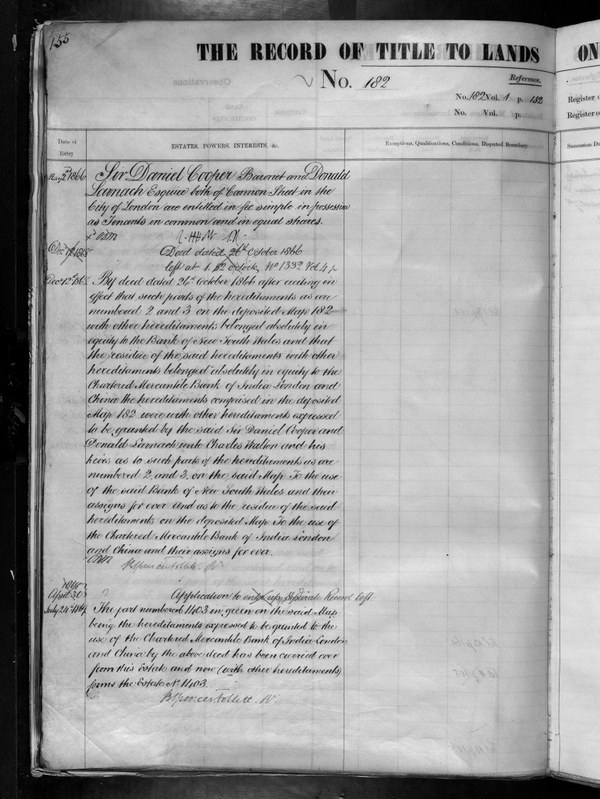 155
THE RECORD OF TITLE TO LANDS
ON
No. 182
Reference.
No. 182 Vol. 1 p. 182
No. Vol. p.
Register
Register
Date of
Entry
ESTATES, POWERS, INTERESTS, &c.
Exceptions, Qualifications, Conditions, Disputed Boundary.
Succession
May 2 1866
Sir Daniel Cooper Baronet and Donald
Larnach Esquire both of Cannon Street in the
City of London are entitled in fee simple in possession
as Tenants in common and in equal shares.
Deed dated 26th October 1866
left at 1.52 o'clock, No 1332 Vol 4
By deed dated 26th October 1866 after reciting in
effect that such parts of the hereditaments as are
numbered 2 and 3 on the deposited Map 182
with other hereditaments belonged absolutely in
equity to the Bank of New South Wales and that
the residue of the said hereditaments with other
hereditaments belonged absolutely in equity to the
Chartered Mercantile Bank of India London and
China the hereditaments comprised in the deposited
Map 182 were with other hereditaments expressed
to be granted by the said Sir Daniel Cooper and
Donald Larnach unto Charles Walton and his
heirs as to such parts of the hereditaments as are
numbered 2 and 3, on the said Map To the use
of the said Bank of New South Wales and their
assigns for ever And as to the residue of the said
hereditaments on the deposited Map To the use of
the Chartered Mercantile Bank of India London
and China and their assigns for ever.
April 30
Application to
left
July 24th 1867
The part numbered 1403 in green on the said Map
being the hereditaments expressed to be granted to the
use of the Chartered Mercantile Bank of India London
and China by the above deed has been carried over
from this Estate and now (with other hereditaments)
forms the Estate No 1403.